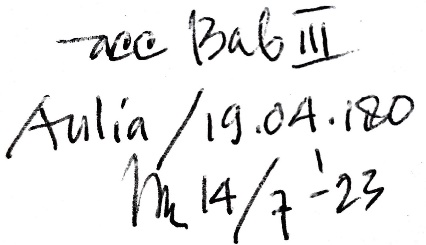 - acc Bab III
Aulia / 19.04.180
14/7-'23